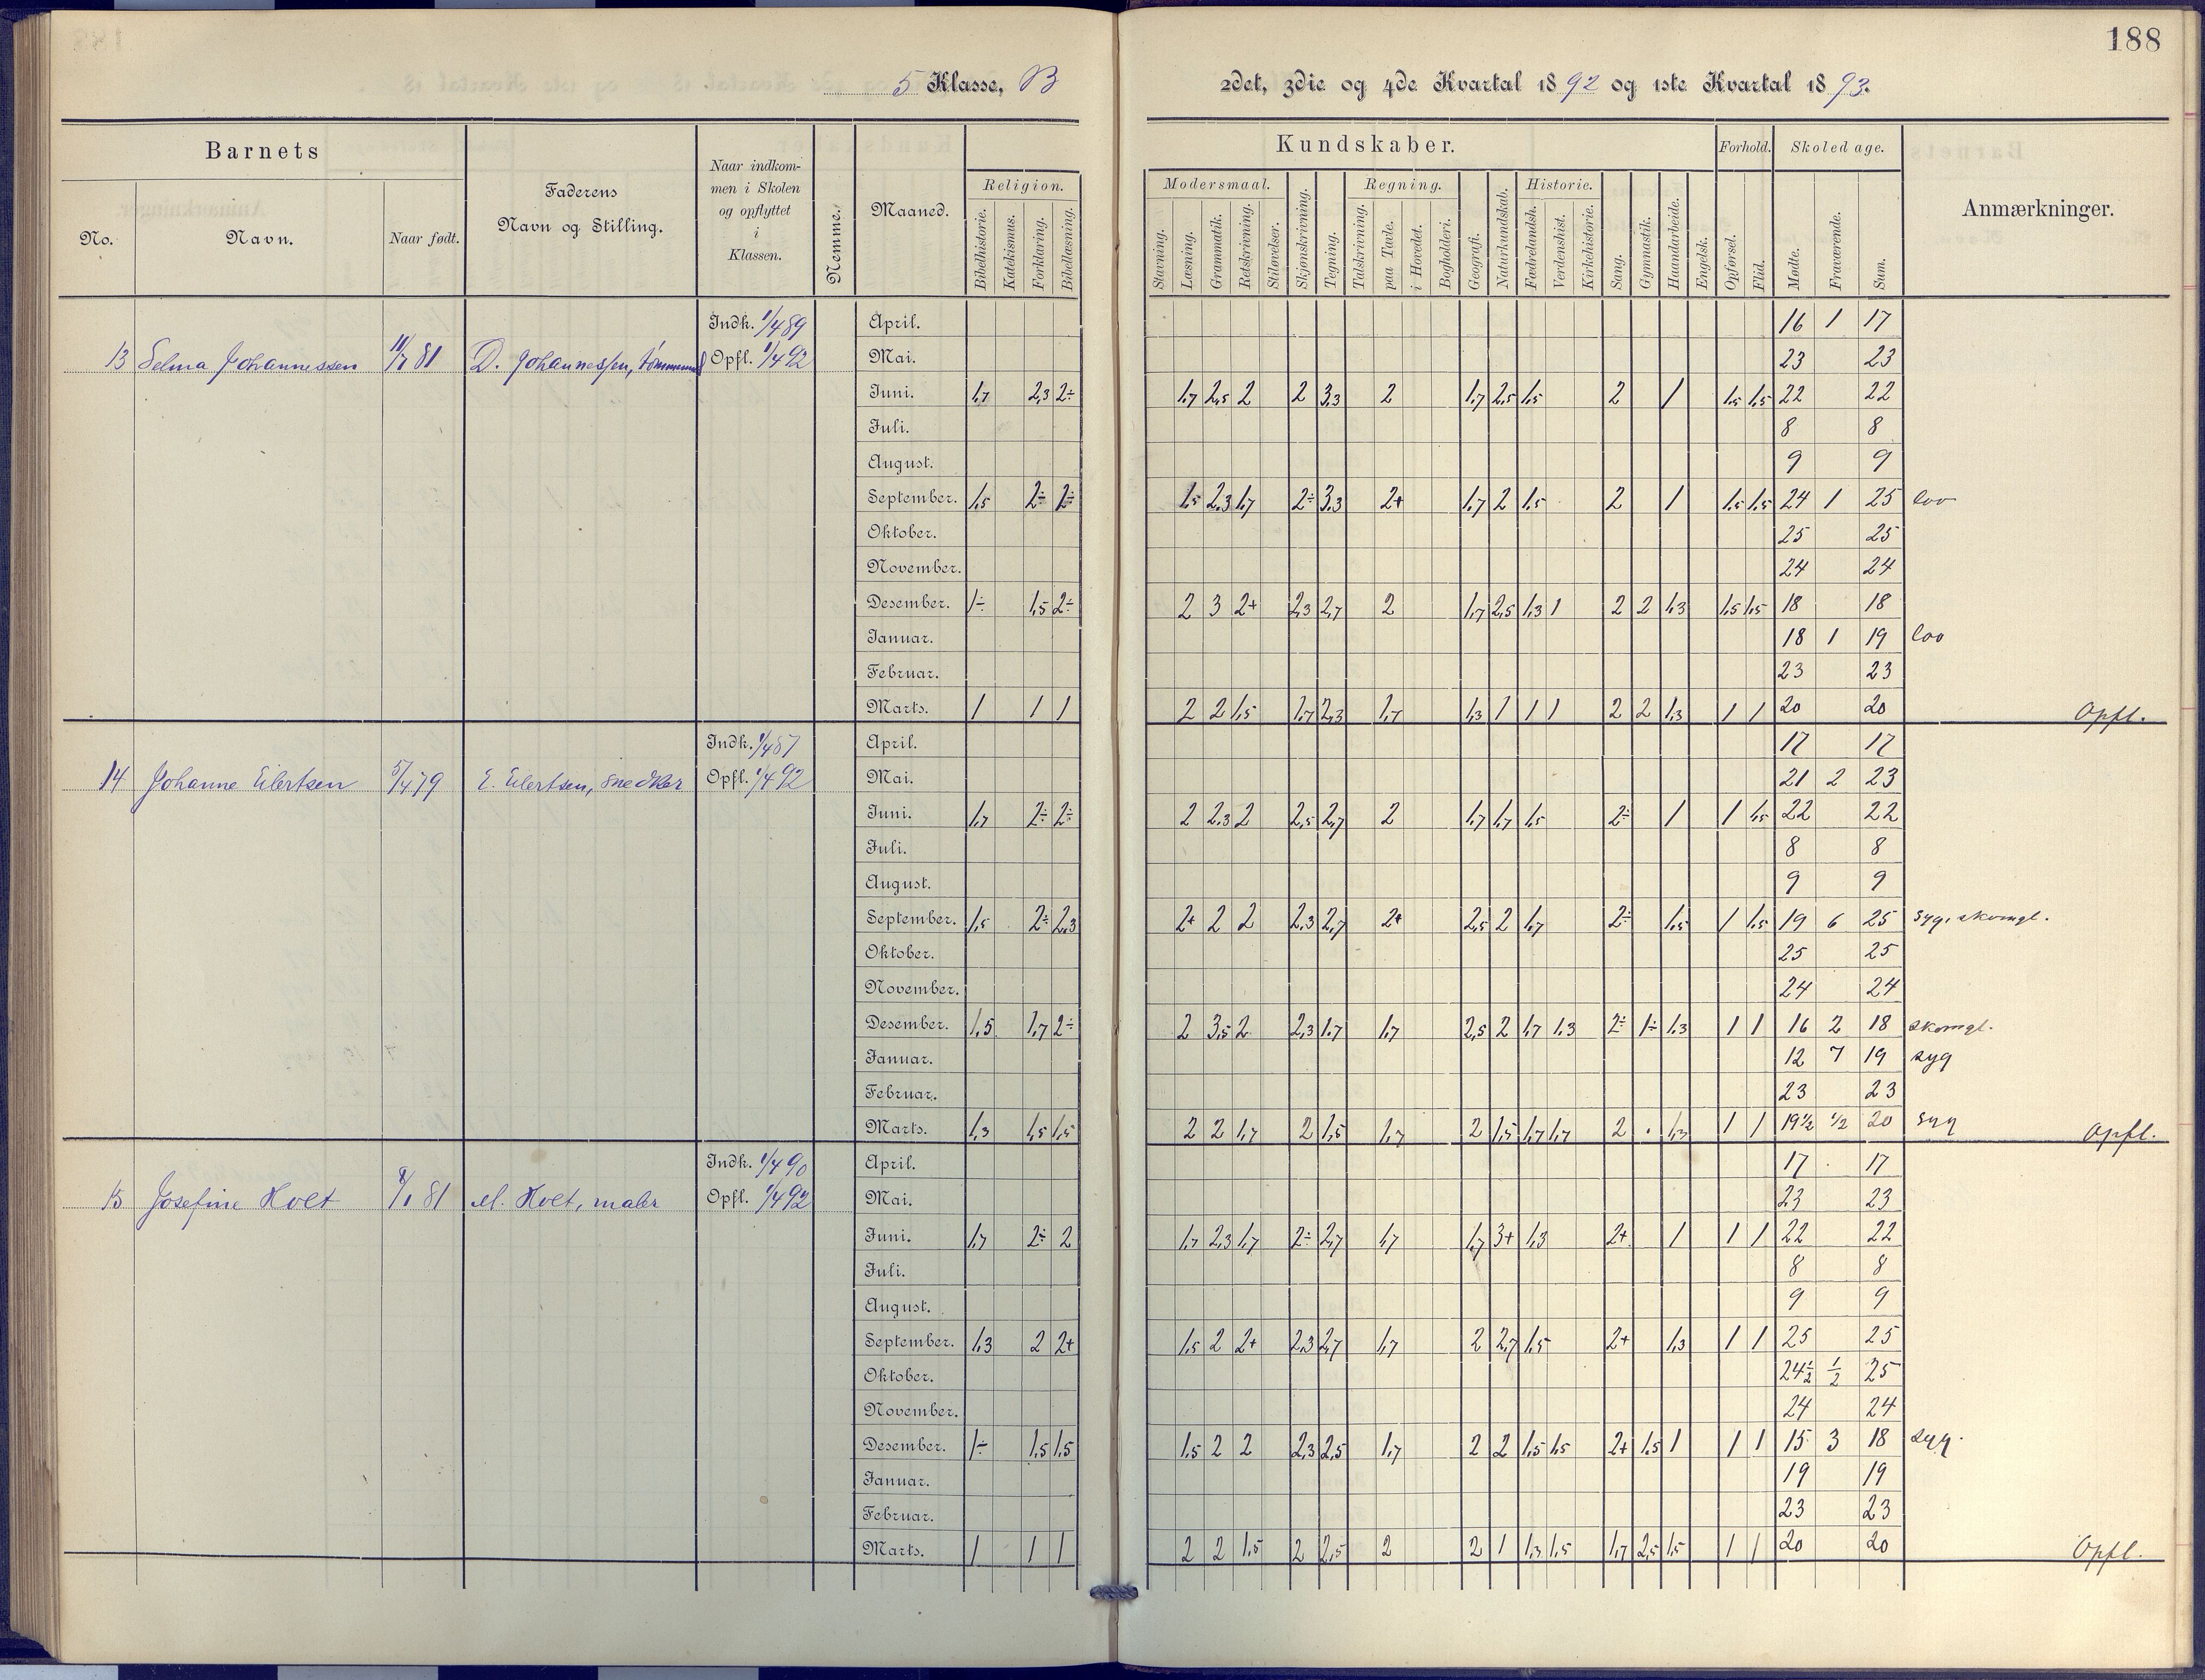 188
5 Klasse, B
2det, 3die og 4de Kvartal 1892 og 1ste Kvartal 1893.
Barnets
No.
Navn.
Naar født.
Faderens
Navn og Stilling.
Naar indkom-
men i Skolen
og opflyttet
i
Klassen.
Nemme.
Maaned.
Kundskaber.
Religion.
Bibelhistorie.
Katekismus.
Forklaring.
Bibellæsning.
Modersmaal.
Stavning.
Læsning.
Grammatik.
Retskrivning.
Stiløvelser.
Skjønskrivning.
Tegning.
Regning.
Talskrivning.
paa Tavle.
i Hovedet.
Bogholderi.
Geografi.
Naturkundskab.
Historie.
Fædrelandsh.
Verdenshist.
Kirkehistorie.
Sang.
Gymnastik.
Haandarbeide.
Engelsk.
Forhold.
Opførsel.
Flid.
Skoledage.
Mødte.
Fraværende.
Sum.
Anmærkninger.
13 Selma Johannessen 11/7 81 D. Johannessen, tømmermd
Indk. 1/4 89
Opfl. 1/4 92
April. 16 1 17
Mai. 23 23
Juni. 1,7 2,3 2÷ 1,7 2,5 2 2 3,3 2 1,7 2,5 1,5 2 1 1,5 1,5 22 22
Juli. 8 8
August. 9 9
September. 1,5 2÷ 2÷ 1,5 2,3 1,7 2÷ 3,3 2+ 1,7 2 1,5 2 1 1,5 1,5 24 1 25 lov
Oktober. 25 25
November. 24 24
Desember. 1÷ 1,5 2÷ 2 3 2+ 2,3 2,7 2 1,7 2,5 1,3 1 2 2 1,3 1,5 1,5 18 18
Januar. 18 1 19 lov
Februar. 23 23
Marts. 1 1 1 2 2 1,5 1,7 2,3 1,7 1,3 1 1 1 2 2 1,3 1 1 20 20 Opfl.
14 Johanne Eilertsen 5/4 79 E. Eilertsen, snedker
Indk. 1/4 87
Opfl. 1/4 92
April. 17 17
Mai. 21 2 23
Juni. 1,7 2÷ 2÷ 2 2,3 2 2,5 2,7 2 1,7 1,7 1,5 2÷ 1 1 1,5 22 22
Juli. 8 8
August. 9 9
September. 1,5 2÷ 2,3 2+ 2 2 2,3 2,7 2+ 2,5 2 1,7 2÷ 1,5 1 1,5 19 6 25 syg, skomgl.
Oktober. 25 25
November. 24 24
Desember. 1,5 1,7 2÷ 2 3,5 2 2,3 1,7 1,7 2,5 2 1,7 1,3 2÷ 1÷ 1,3 1 1 16 2 18 skomgl.
Januar. 12 7 19 syg
Februar. 23 23
Marts. 1,3 1,5 1,5 2 2 1,7 2 1,5 1,7 2 1,5 1,7 1,7 2 . 1,3 1 1 19 1/2 1/2 20 syg Opfl.
15 Josefine Holt 8/1 81 M. Holt, maler
Indk. 1/4 90
Opfl. 1/4 92
April. 17 17
Mai. 23 23
Juni. 1,7 2÷ 2 1,7 2,3 1,7 2÷ 2,7 1,7 1,7 3+ 1,3 2+ 1 1 1 22 22
Juli. 8 8
August. 9 9
September. 1,3 2 2+ 1,5 2 2+ 2,3 2,7 1,7 2 2,7 1,5 2+ 1,3 1 1 25 25
Oktober. 24 1/2 1/2 25
November. 24 24
Desember. 1÷ 1,5 1,5 1,5 2 2 2,3 2,5 1,7 2 2 1,5 1,5 2+ 1,5 1 1 1 15 3 18 syg.
Januar. 19 19
Februar. 23 23
Marts. 1 1 1 2 2 1,5 2 2,5 2 2 1 1,3 1,5 1,7 2,5 1,5 1 1 20 20 Opfl.